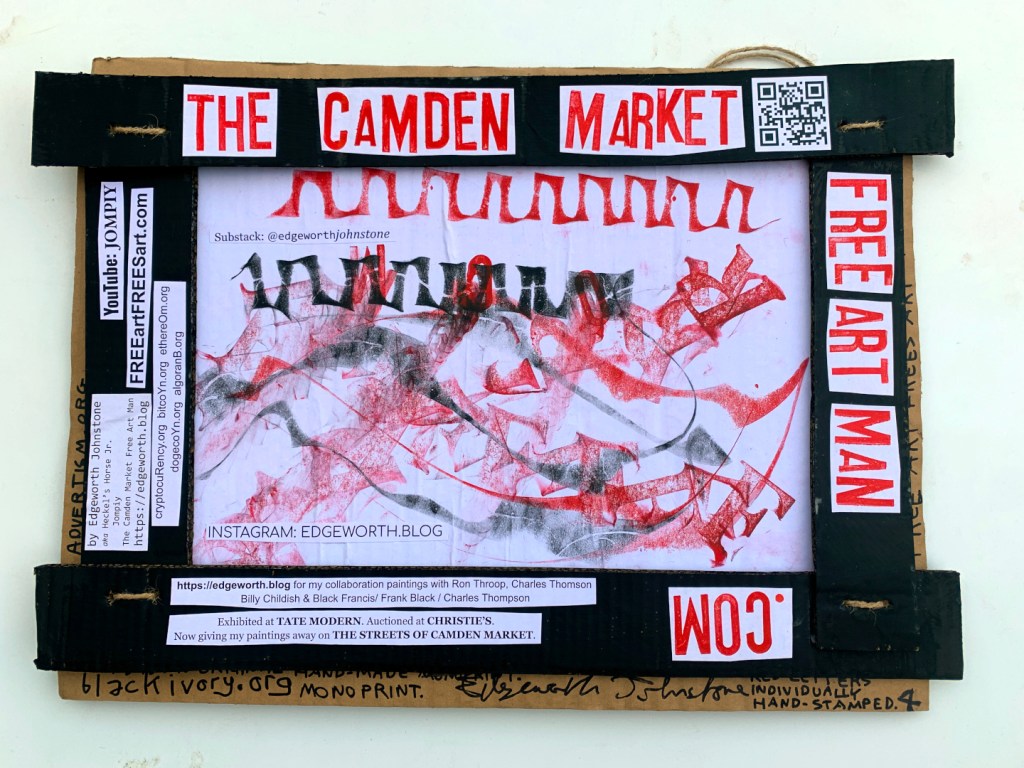 THE CAMDEN MARKET
FREE ART MAN
.COM
YouTube: JOMPIY
FREEartFREESart.com
cryptocuRency.org bitcoYn.org ethereOm.org
dogecoYn.org algoranB.org
by Edgeworth Johnstone
aka Heckel's Horse Jr.
Jompiy
The Camden Market Free Art Man
https://edgeworth.blog
Substack: @edgeworthjohnstone
INSTAGRAM: EDGEWORTH.BLOG
https://edgeworth.blog for my collaboration paintings with Ron Throop, Charles Thomson
Billy Childish & Black Francis/ Frank Black / Charles Thompson
Exhibited at TATE MODERN. Auctioned at CHRISTIE'S.
Now giving my paintings away on THE STREETS OF CAMDEN MARKET.
ADVERTISM.ORG
FREE ART FREES ART
blackivory.org
HAND-MADE MONOPRINT.
MONOPRINT.
Edgeworth Johnstone
RED LETTERS
INDIVIDUALLY
HAND-STAMPED. 4